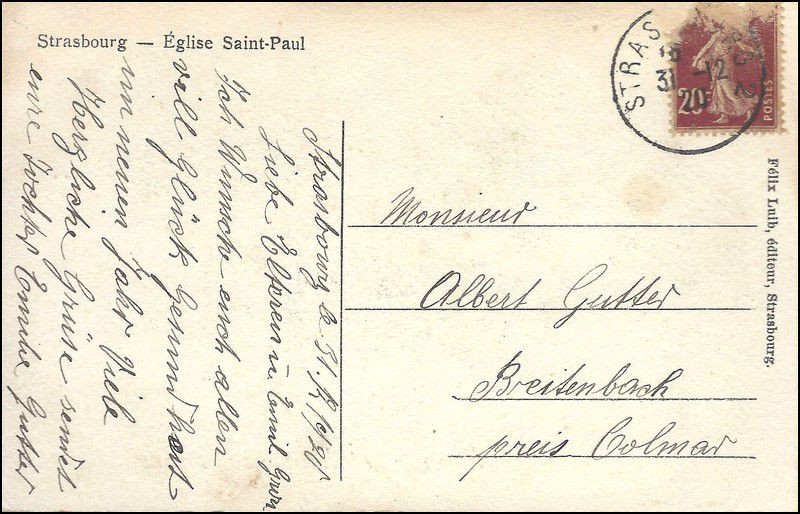 Strasbourg — Église Saint-Paul
STRAS
31 -12
20c
POSTES
Félix Luib, éditeur, Strasbourg.
Strasbourg le 31.
Liebe Elteren u. Emil
Ich Wünsche euch allen
viel Glück Gesundheit
im neuen Jahr Viele
Herzliche Grüse sendet
eure Tochter Emilie Gutter
Monsieur
Albert Gutter
Breitenbach
preis Colmar